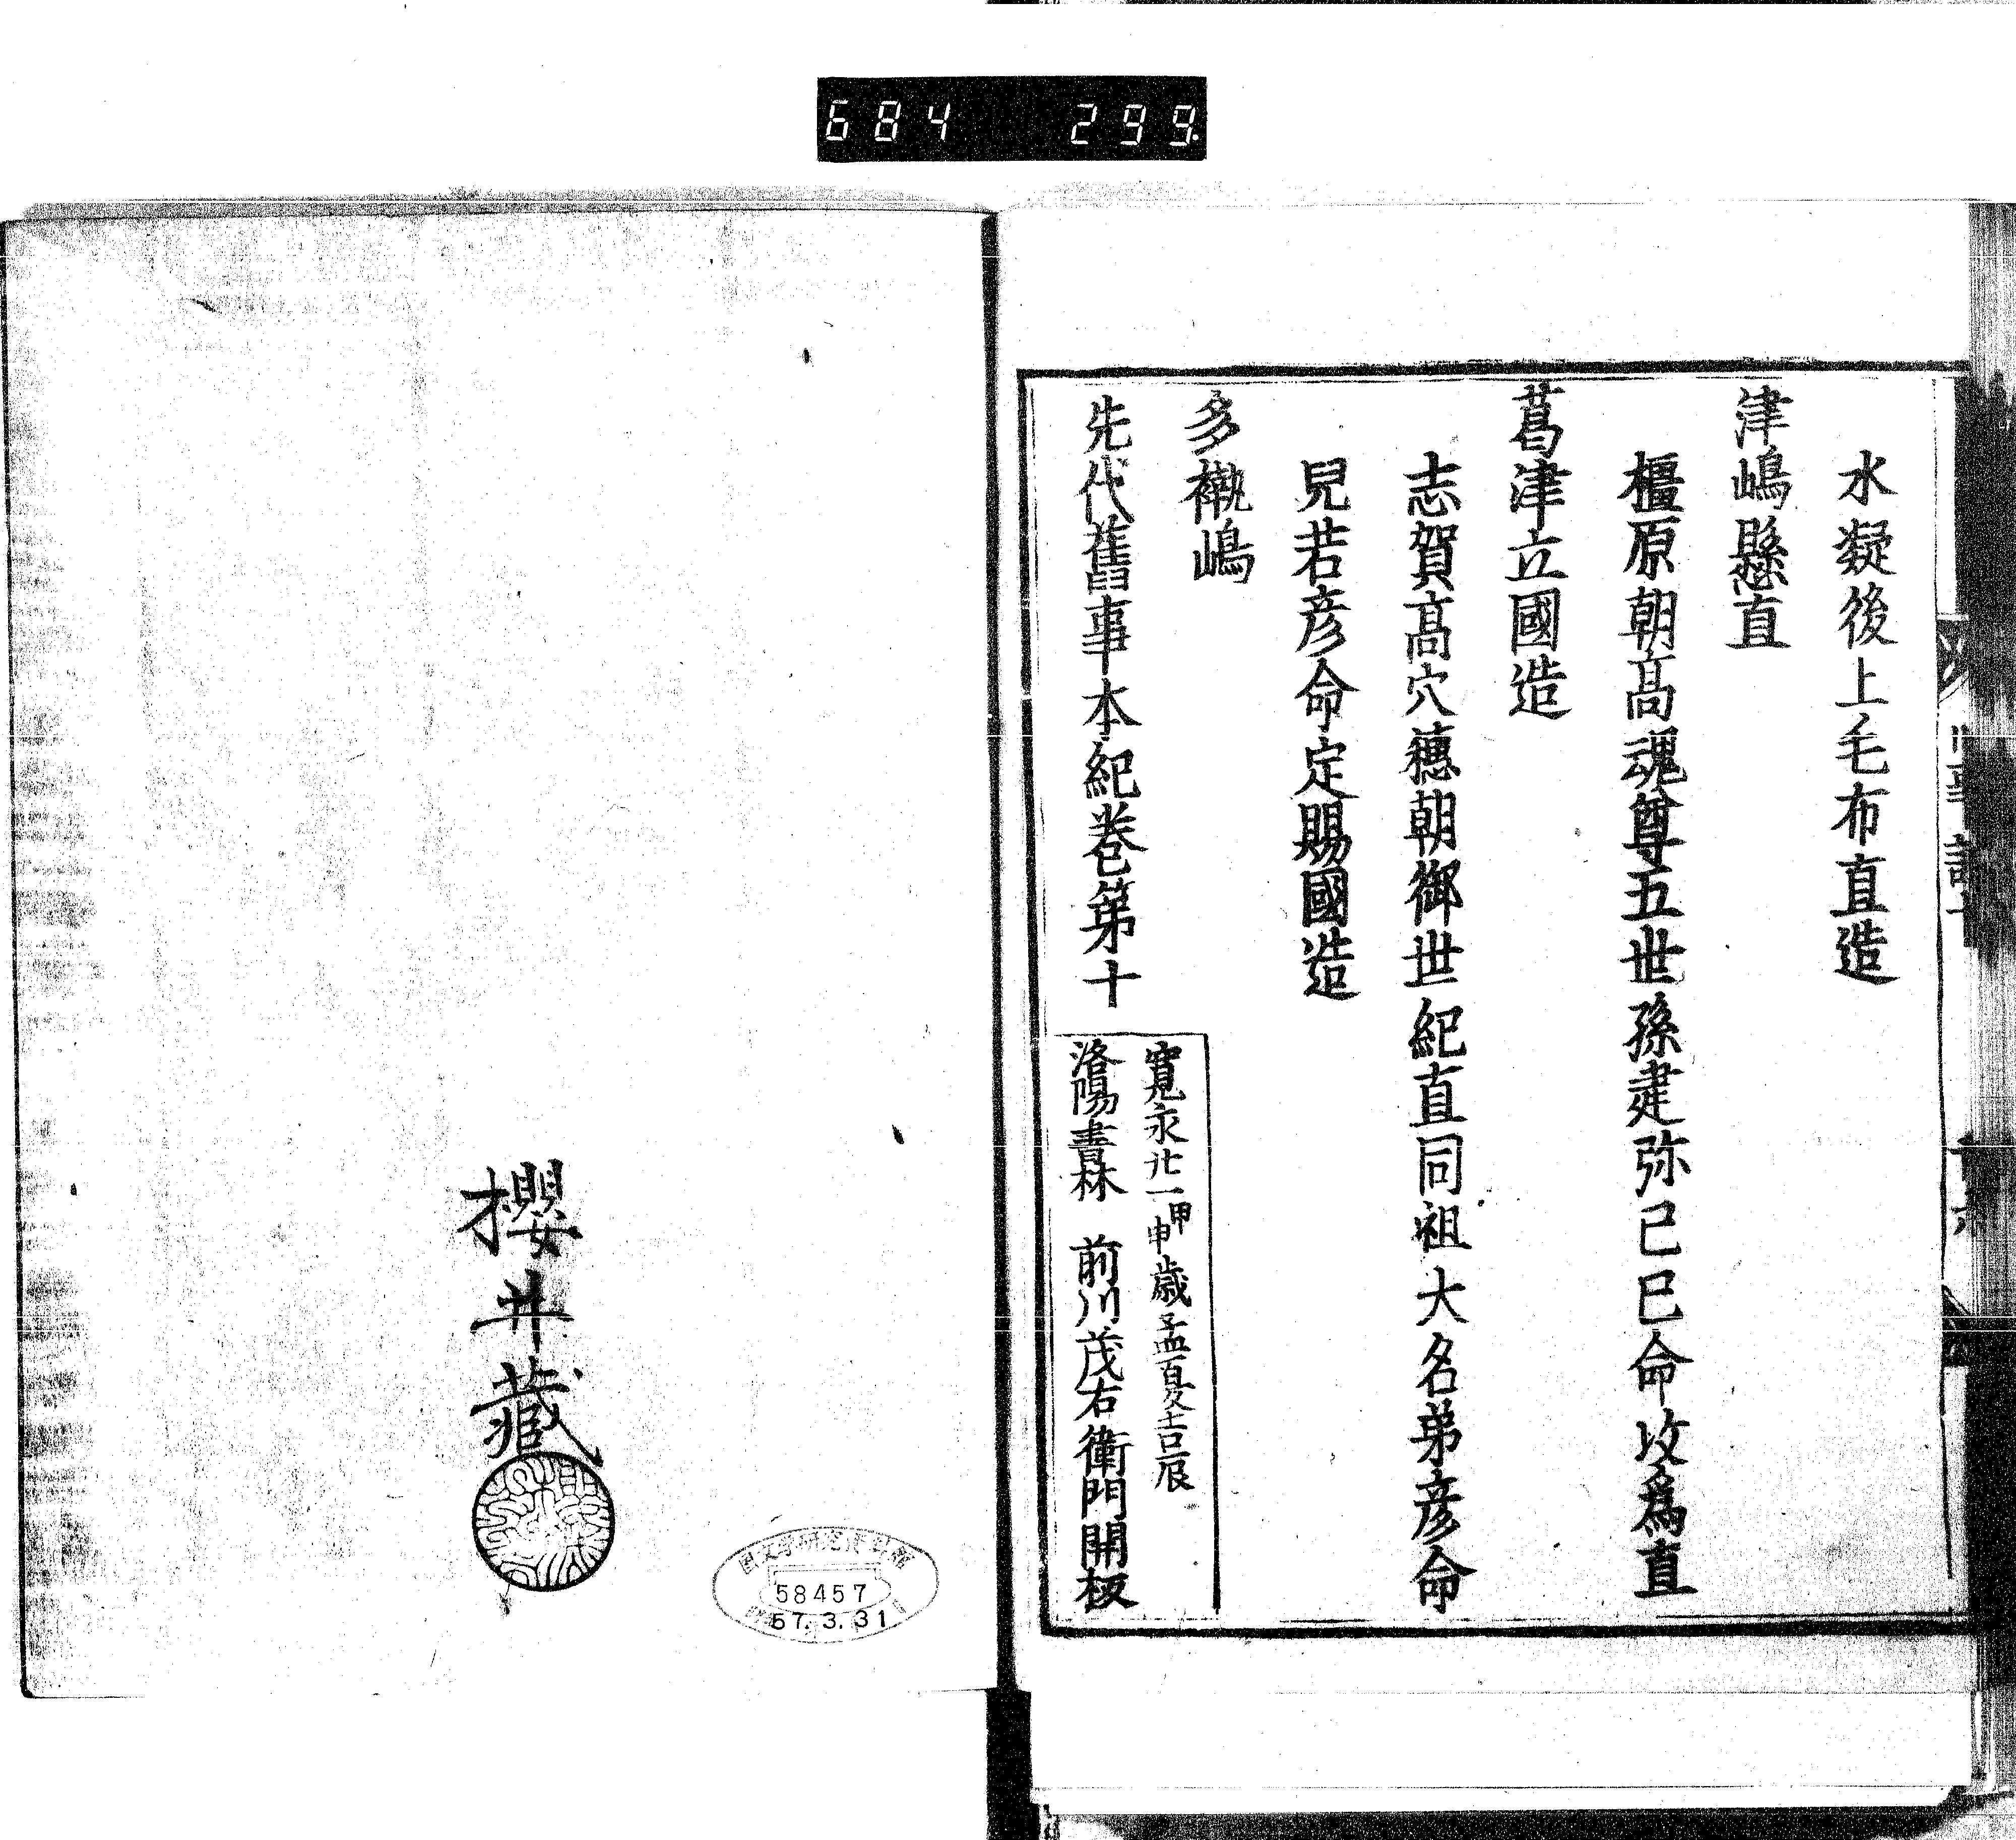 684 299.
水凝後上毛布直造
津嶋縣直
橿原朝髙魂尊五世孫建弥己巳命攺爲直
葛津立國造
志賀髙穴穗朝御世紀直同祖大名弟彦命
兒若彦命定賜國造
多褹嶋
先代舊事本紀巻第十
寛永廿一甲申歳孟夏吉辰
洛陽書林 前川茂右衛門開板
櫻井藏
国文学研究資料館
58457
57.3.31